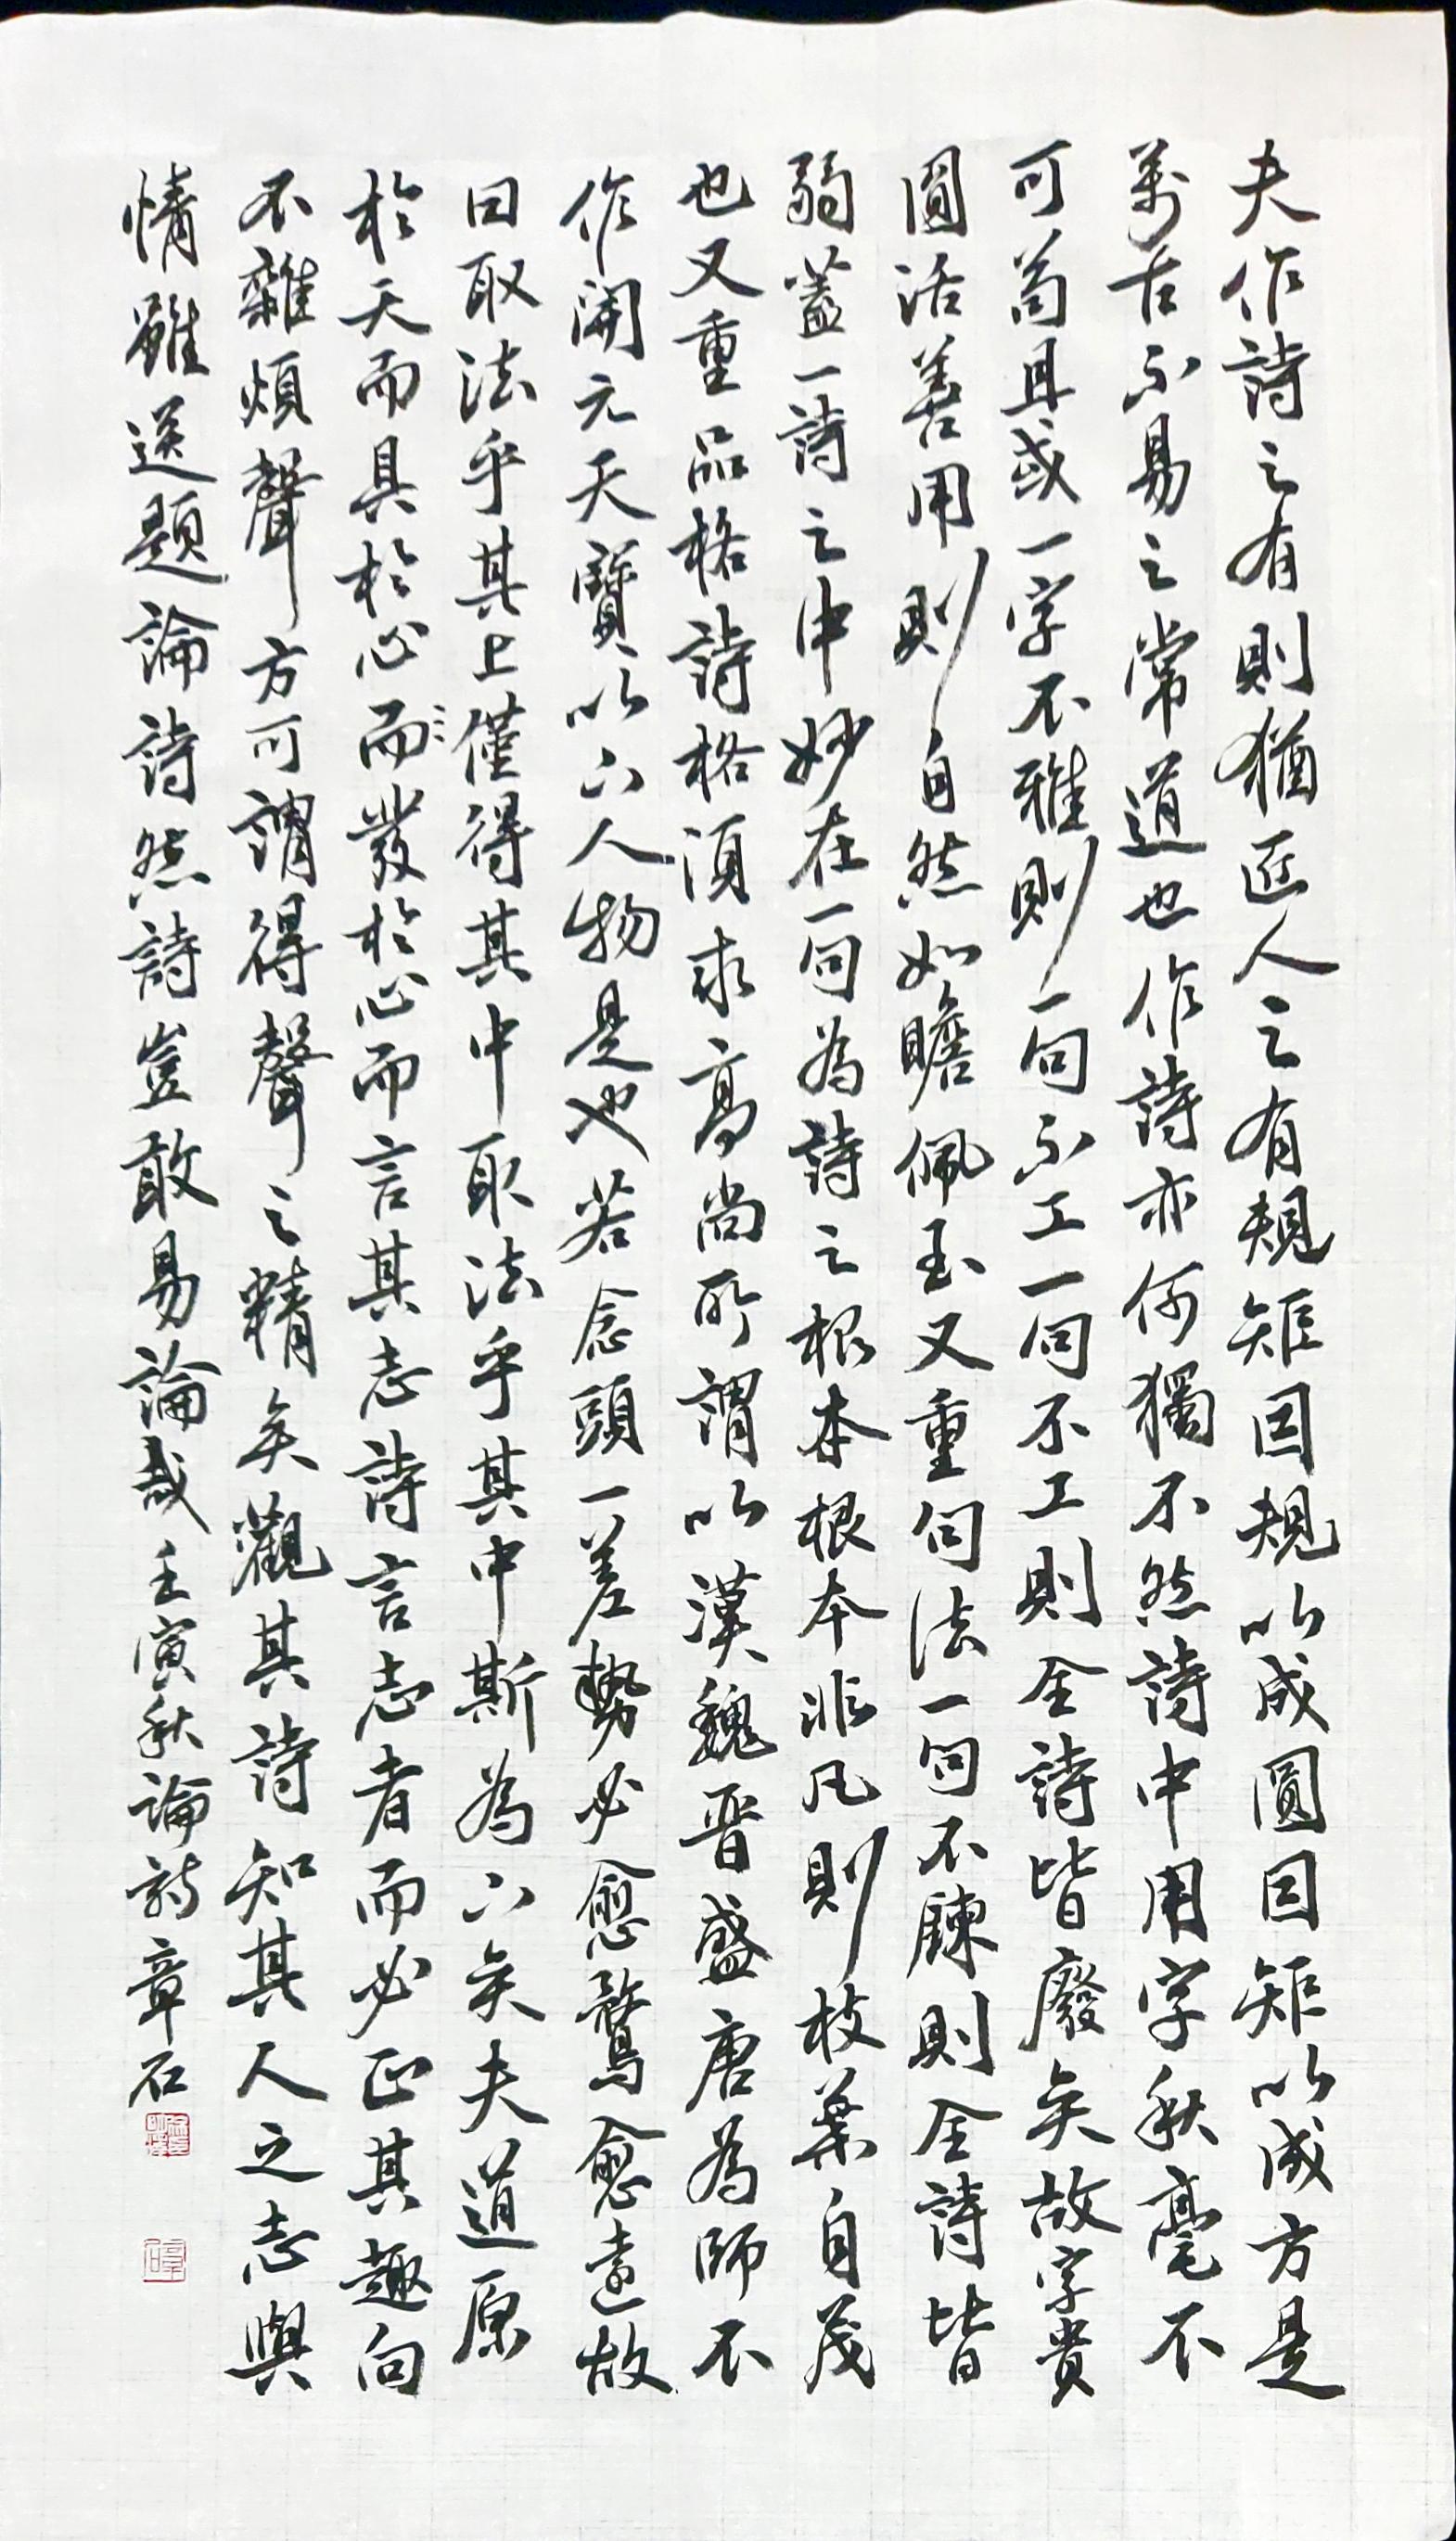 夫作詩之有則猶匠人之有規矩因規以成圓因矩以成方是
萬古不易之常道也作詩亦何獨不然詩中用字秋毫不
可苟且或一字不雅則一句不工一句不工則全詩皆廢矣故字貴
圓活善用則自然如瞻佩玉又重句法一句不鍊則全詩皆
弱蓋一詩之中妙在一句為詩之根本根本非凡則枝葉自茂
也又重品格詩格須求高尚所謂以漢魏晉盛唐為師不
作開元天寶以下人物是也若念頭一差勢必愈騖愈遠故
曰取法乎其上僅得其中取法乎其中斯為下矣夫道原
於天而具於心而發於心而言其志詩言志者而必正其趣向
不雜煩聲方可謂得聲之精矣觀其詩知其人之志與
情雖送題論詩然詩豈敢易論哉壬寅秋論詩章石